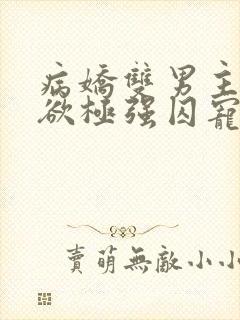 病嬌雙男主
欲極強囚寵
賣萌無敵小小